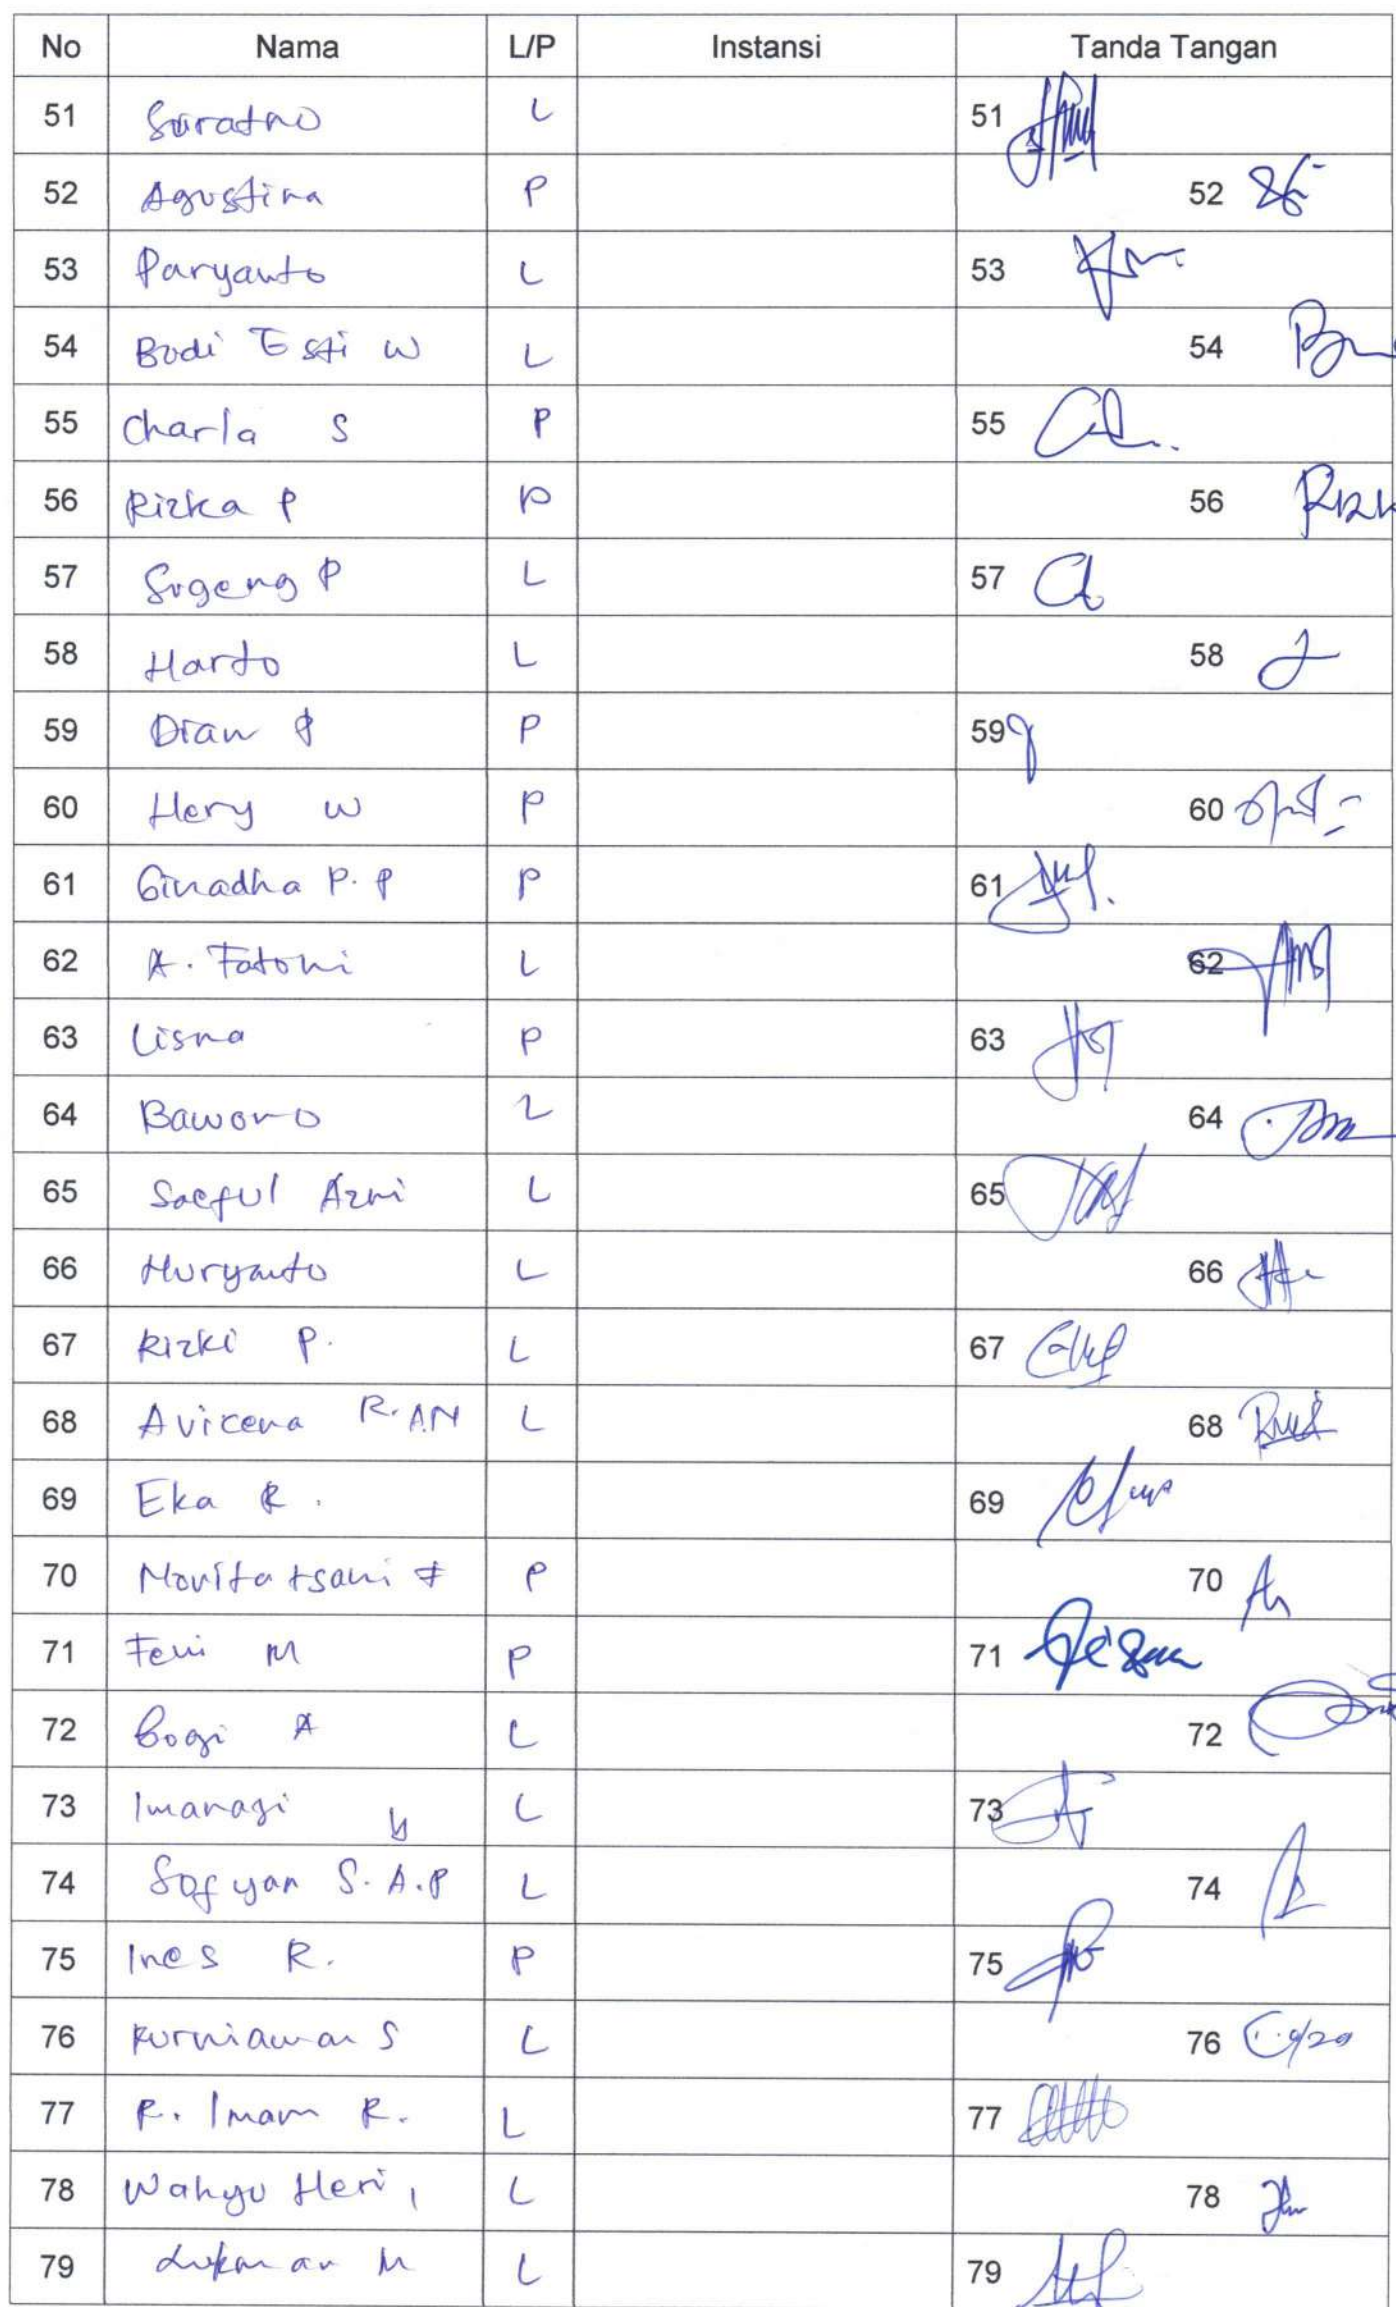 No Nama L/P Instansi Tanda Tangan
51 Suratno L 51
52 Agustina P 52
53 Paryanto L 53
54 Budi Esti W L 54
55 Charla S P 55
56 Rizka P P 56
57 Sugeng P L 57
58 Harto L 58
59 Dian P P 59
60 Hery W P 60
61 Ginadha P. P P 61
62 A. Fatoni L 62
63 Lisna P 63
64 Bawono L 64
65 Saeful Azni L 65
66 Huryanto L 66
67 Rizki P. L 67
68 Avicena R. AN L 68
69 Eka R. 69
70 Novita tsani F P 70
71 Feni M P 71
72 Bogi A L 72
73 L 73
74 Sofyan S. A. P L 74
75 Ines R. P 75
76 Kurniawan S L 76
77 R. Imam R. L 77
78 Wahyu Heri, L 78
79 Lukman M L 79